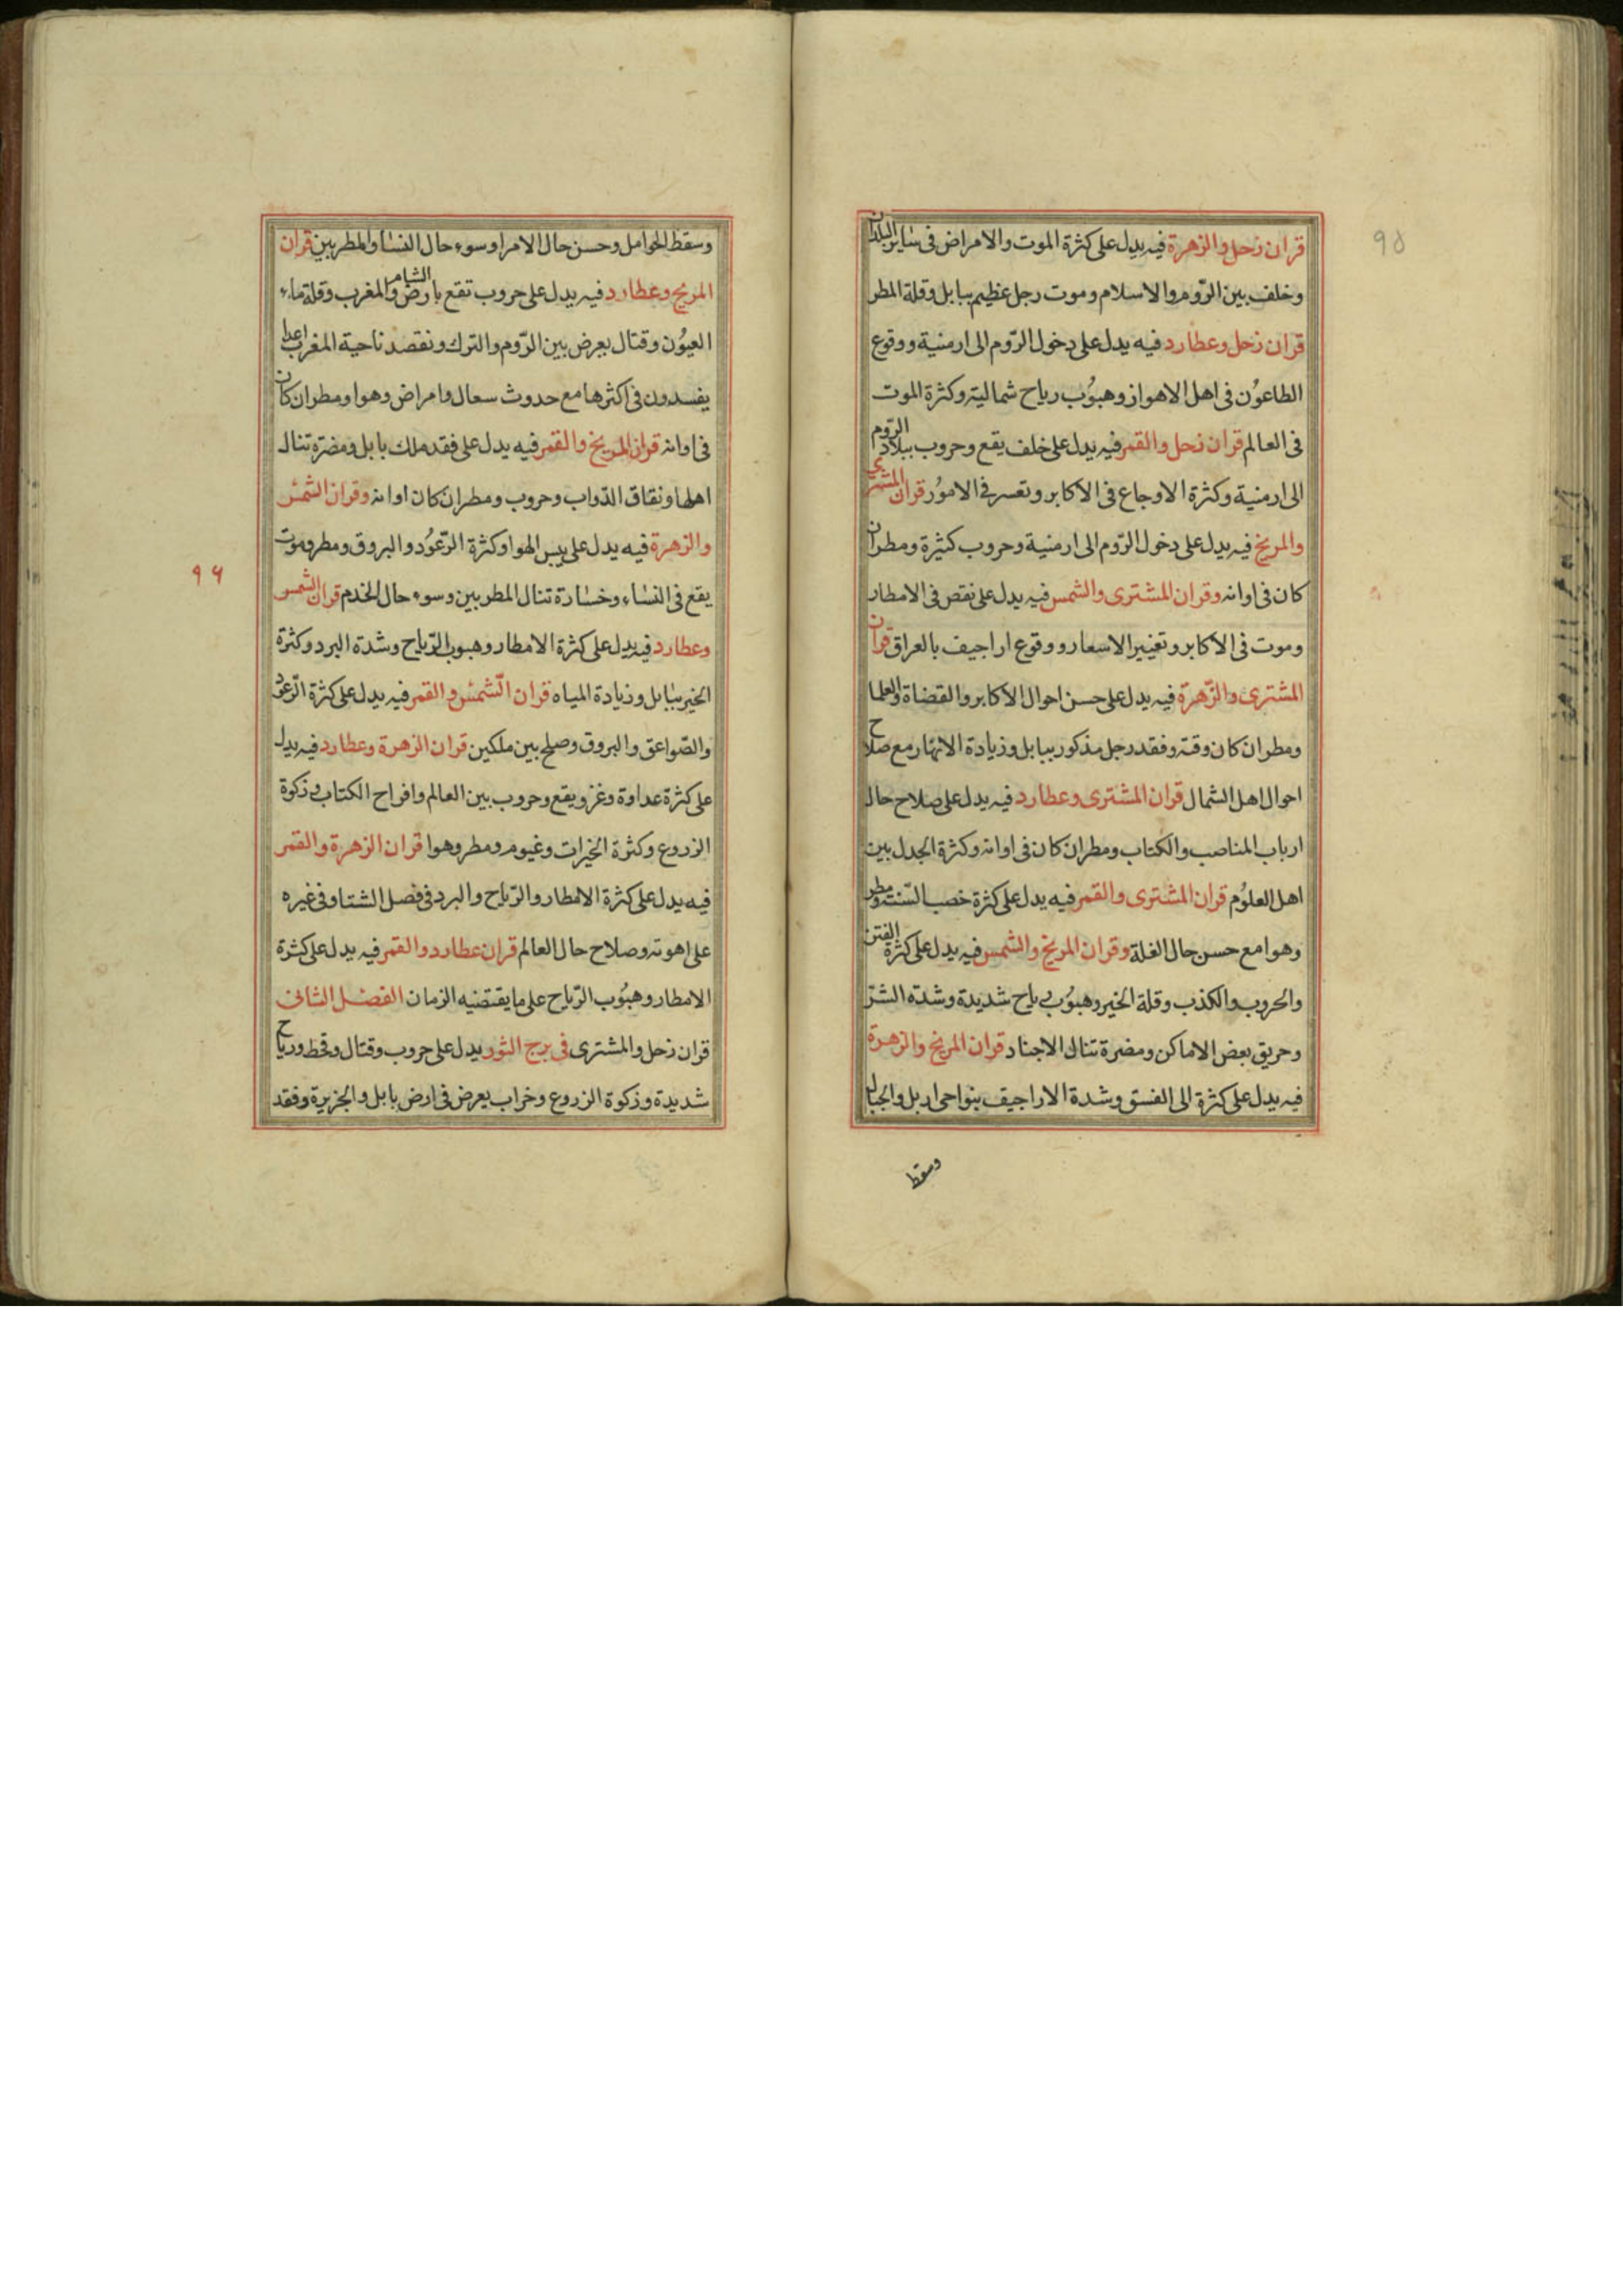 قران زحل والزهرة فيه يدل على كثرة الموت والامراض فى ساير البلدان
وخلف بين الروم والاسلام وموت رجل عظيم ببابل وقلة المطر
قران زحل وعطارد فيه يدل على دخول الروم الى ارمنية ووقوع
الطاعون فى اهل الاهواز وهبوب رياح شمالية وكثرة الموت
فى العالم قران زحل والقمر فيه يدل على خلف يقع وحروب ببلاد الروم
الى ارمنية وكثرة الاوجاع فى الاكابر وتعسر فى الامور قران المشترى
والمريخ فيه يدل على دخول الروم الى ارمنية وحروب كثيرة ومطر ان
كان فى اوانه وقران المشترى والشمس فيه يدل على نقص فى الامطار
وموت فى الاكابر وتغيير الاسعار ووقوع اراجيف بالعراق قران
المشترى والزهرة فيه يدل على حسن احوال الاكابر والقضاة والعلما
ومطر ان كان وقته وفقد رجل مذكور ببابل وزيادة الانهار مع صلاح
احوال اهل الشمال قران المشترى وعطارد فيه يدل على صلاح حال
ارباب المناصب والكتاب ومطر ان كان فى اوانه وكثرة الجدل بين
اهل العلوم قران المشترى والقمر فيه يدل على كثرة خصب السنة ومطر
وهوا مع حسن حال الغلة وقران المريخ والشمس فيه يدل على كثرة الفتن
والحروب والكذب وقلة الخير وهبوب رياح شديدة وشدة الشر
وحريق بعض الاماكن ومضرة تنال الاجناد قران المريخ والزهرة
فيه يدل على كثرة الى الفسق وشدة الاراجيف بنواحى اربل والجبال
وسقط
٩٥
وسقط الحوامل وحسن حال الامرا وسوء حال النسا والمطربين قران
المريخ وعطارد فيه يدل على حروب تقع بارض الشام والمغرب وقلة ماء
العيون وقتال يعرض بين الروم والترك ونقصد ناحية المغرب اعدا
يفسدون فى اكثرها مع حدوث سعال وامراض وهوا ومطر ان كان
فى اوانه قران المريخ والقمر فيه يدل على فقد ملك بابل ومضرة تنال
اهلها ونفاق الدواب وحروب ومطر ان كان اوانه وقران الشمس
والزهرة فيه يدل على يبس الهوا وكثرة الرعود والبروق ومطر وموت
يقع فى النساء وخسارة تنال المطربين وسوء حال الخدم قران الشمس
وعطارد فيه يدل على كثرة الامطار وهبوب الرياح وشدة البرد وكثرة
الخير ببابل وزيادة المياه قران الشمس والقمر فيه يدل على كثرة الرعود
والصواعق والبروق وصلح بين ملكين قران الزهرة وعطارد فيه يدل
على كثرة عداوة وغزو يقع وحروب بين العالم وافراح الكتاب وذكوة
الزروع وكثرة الخيرات وغيوم ومطر وهوا قران الزهرة والقمر
فيه يدل على كثرة الامطار والرياح والبرد فى فصل الشتا وفى غيره
على اهوته وصلاح حال العالم قران عطارد والقمر فيه يدل على كثرة
الامطار وهبوب الرياح على ما يقتضيه الزمان الفصل الثانى
قران زحل والمشترى فى برج الثور يدل على حروب وقتال وقحط ورياح
شديدة وذكوة الزروع وخراب يعرض فى ارض بابل والجزيرة وفقد
٩٦